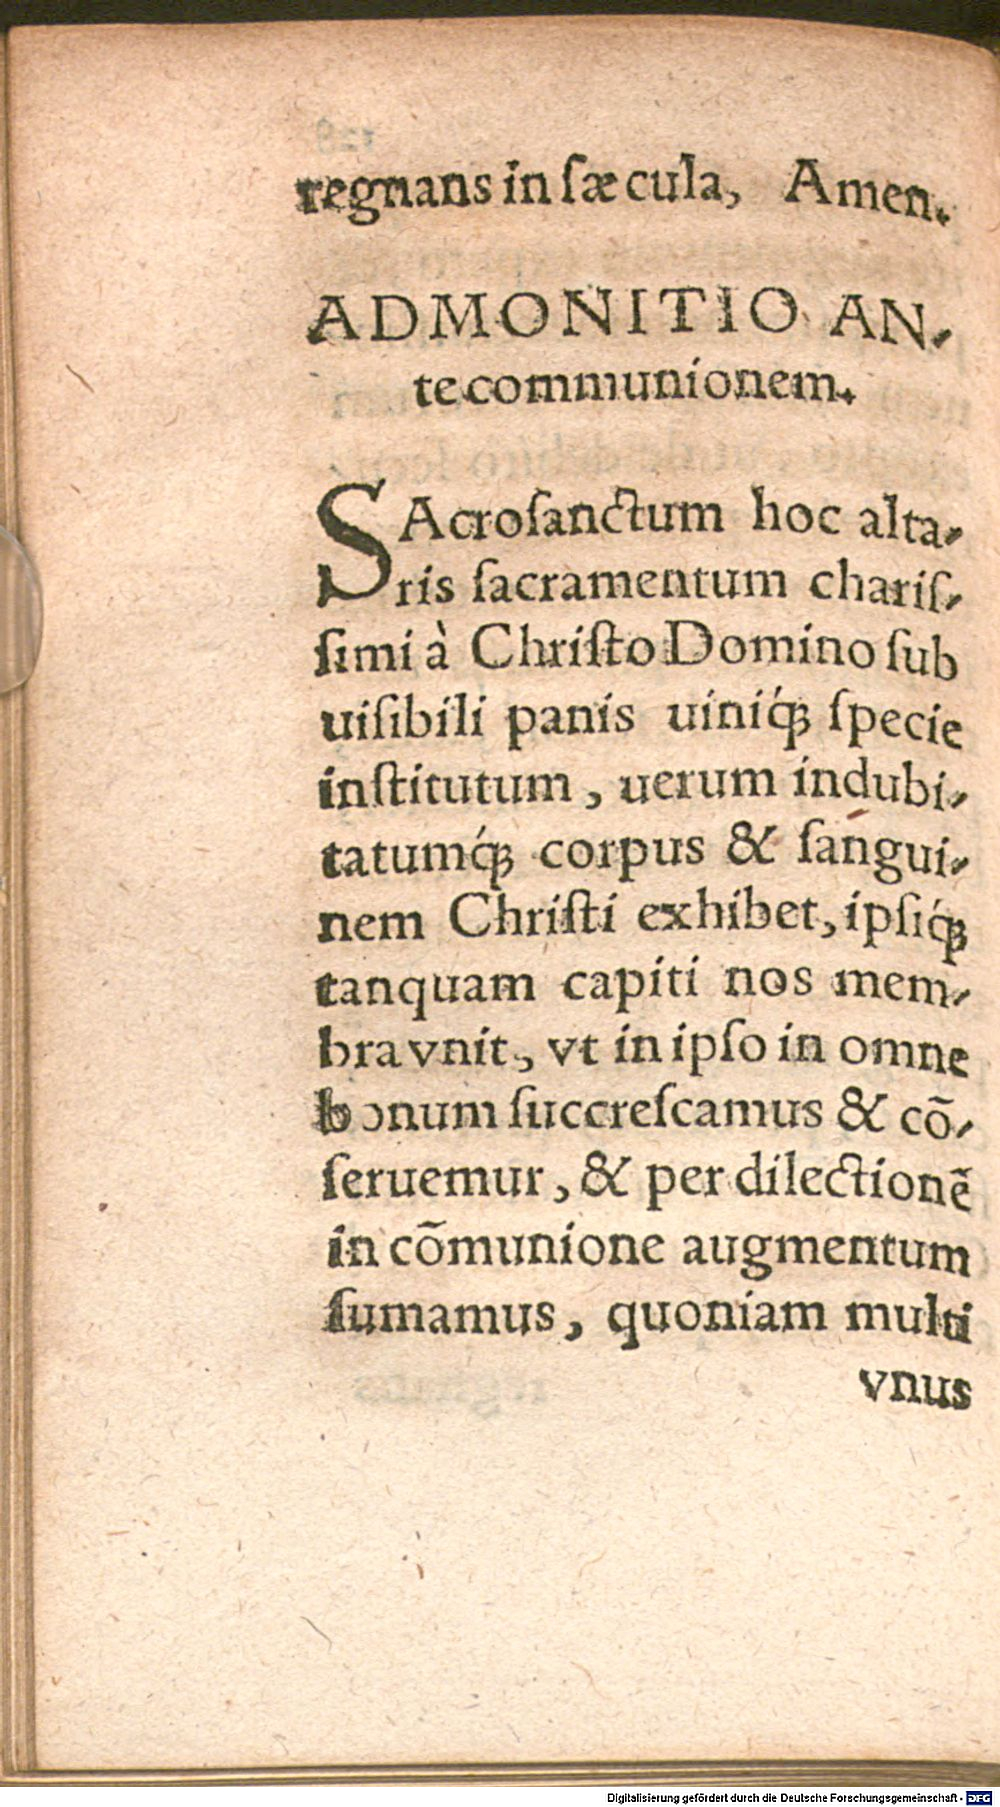 regnans in ſæcula, Amen.
ADMONITIO AN-
te communionem.
SAcroſanctum hoc alta-
ris ſacramentum chariſ-
ſimi à Chriſto Domino ſub
uiſibili panis uiniq́; ſpecie
inſtitutum, uerum indubi-
tatumq́; corpus & ſangui-
nem Chriſti exhibet, ipſiq́;
tanquam capiti nos mem-
bra vnit, vt in ipſo in omne
bonum ſuccreſcamus & cō-
ſeruemur, & per dilectionē
in cōmunione augmentum
ſumamus, quoniam multi
vnus
Digitalisierung gefördert durch die Deutsche Forschungsgemeinschaft - DFG